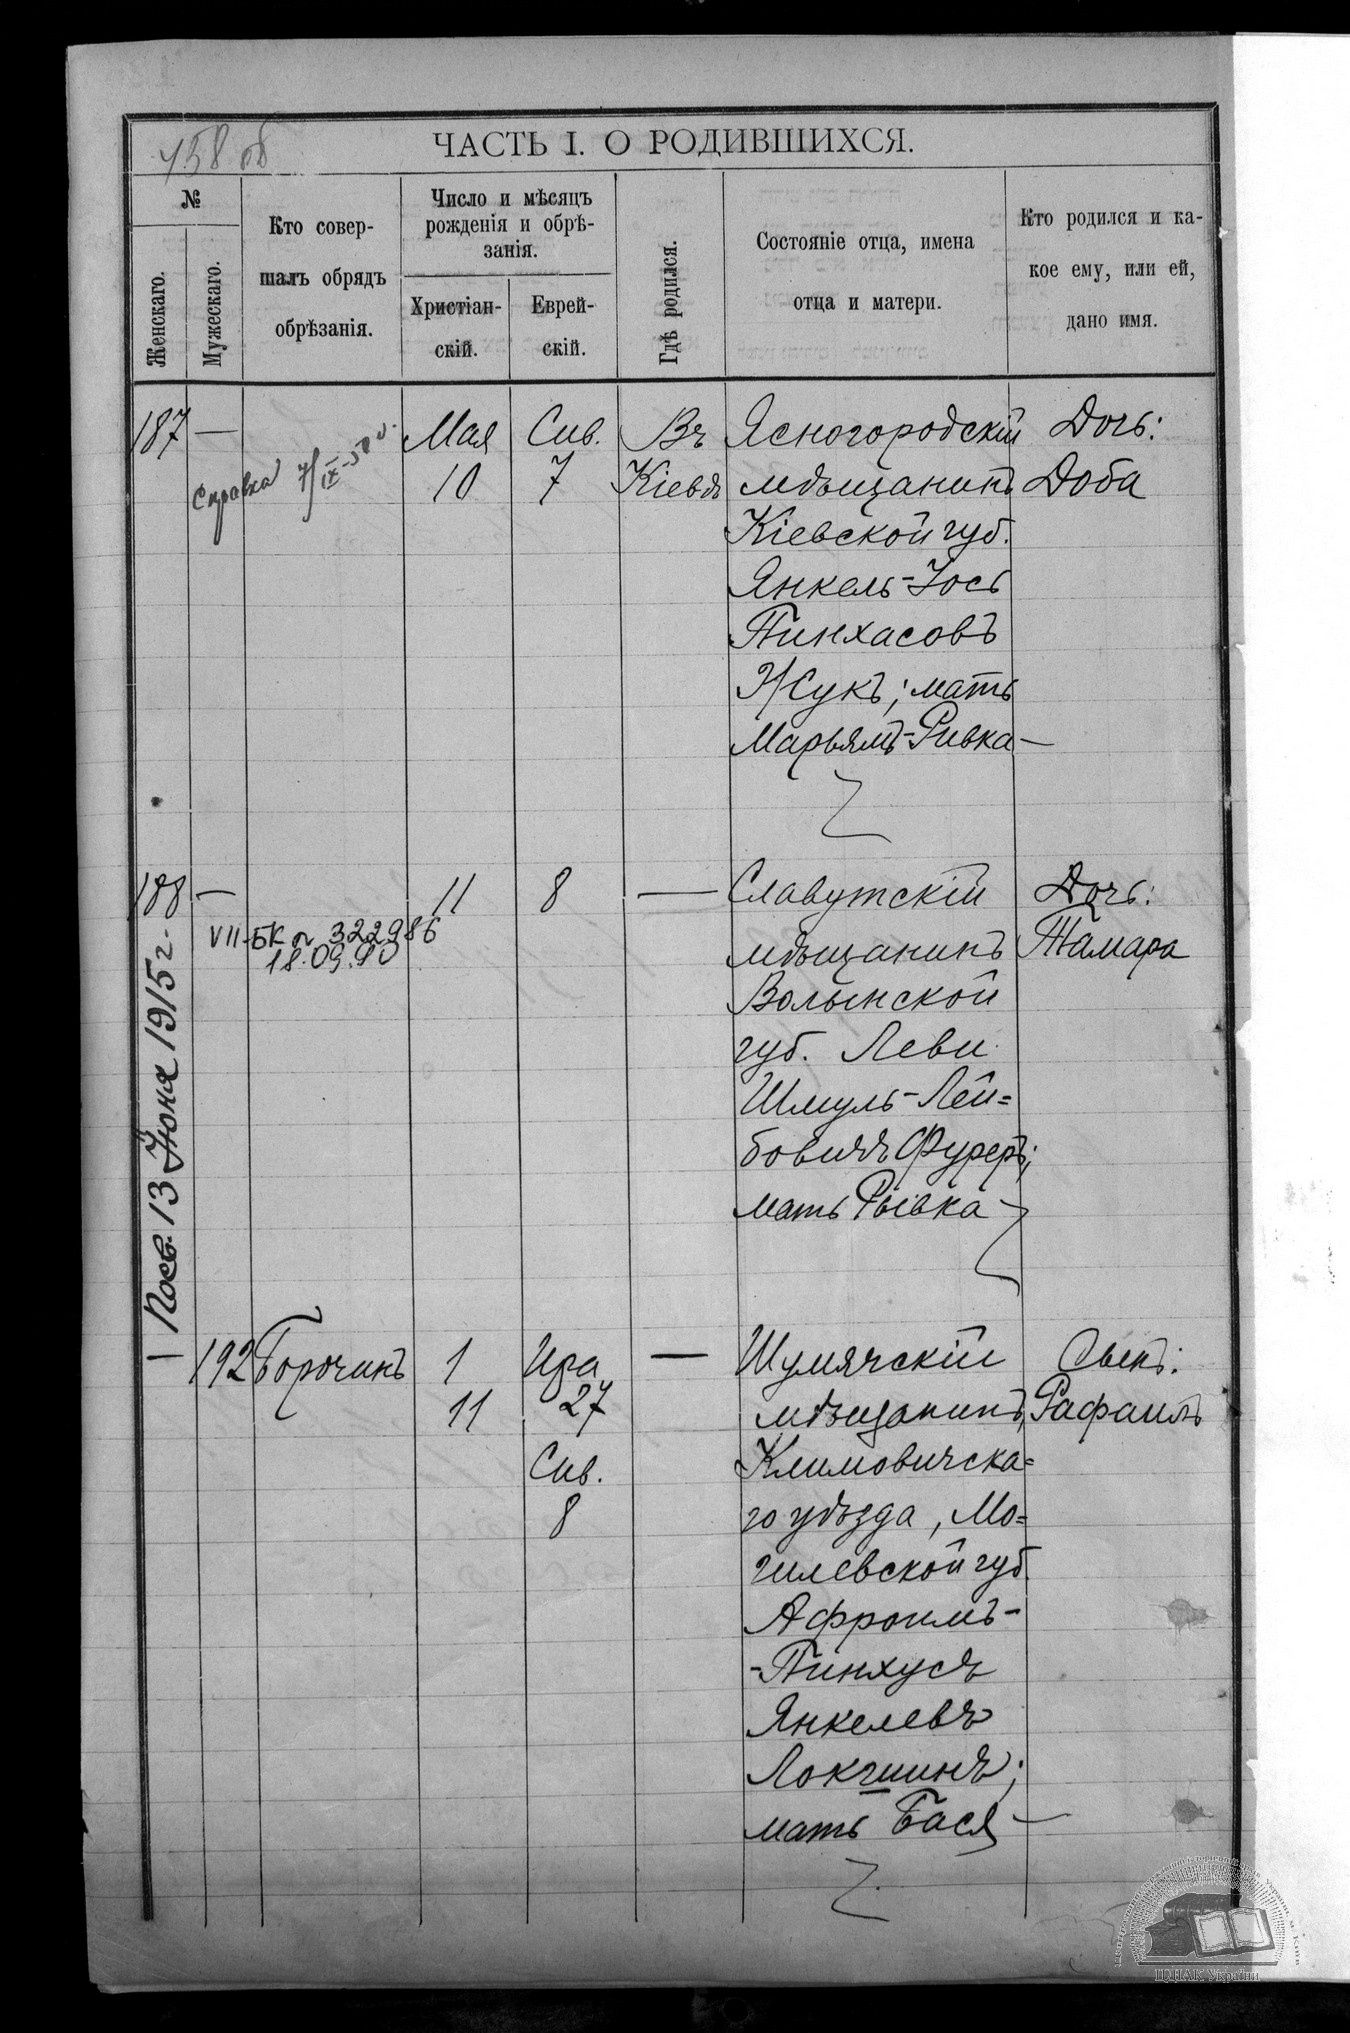 158 об
ЧАСТЬ I. О РОДИВШИХСЯ.
№
Женскаго.
Мужескаго.
Кто совер-
шалъ обрядъ
обрѣзанія.
Число и мѣсяцъ
рожденія и обрѣ-
занія.
Христіан-
скій.
Еврей-
скій.
Гдѣ родился.
Состояніе отца, имена
отца и матери.
Кто родился и ка-
кое ему, или ей,
дано имя.
187 —
Справка 7/IX-50 г.
Мая
10
Сив.
7
Въ
Кіевѣ
Ясногородскій
мѣщанинъ
Кіевской губ.
Янкель-Іось
Пинхасовъ
Жукъ; мать
Марьямъ-Ривка —
Дочь:
Доба
188 —
VII-БК № 322986
18.09.90
11
8
—
Славутскій
мѣщанинъ
Волынской
губ. Леви
Шмуль-Лей=
бовичъ Фуреръ;
мать Рывка
Дочь:
Тамара
Посв. 13 Іюня 1915 г.
— 192
Борочинъ
1
11
Ира
27
Сив.
8
—
Шумячскій
мѣщанинъ,
Климовичска=
го уѣзда, Мо=
гилевской губ.
Афроимъ-
-Пинхусъ
Янкелевъ
Локшинъ;
мать Бася —
Сынъ:
Рафаилъ
ЦДІАК України